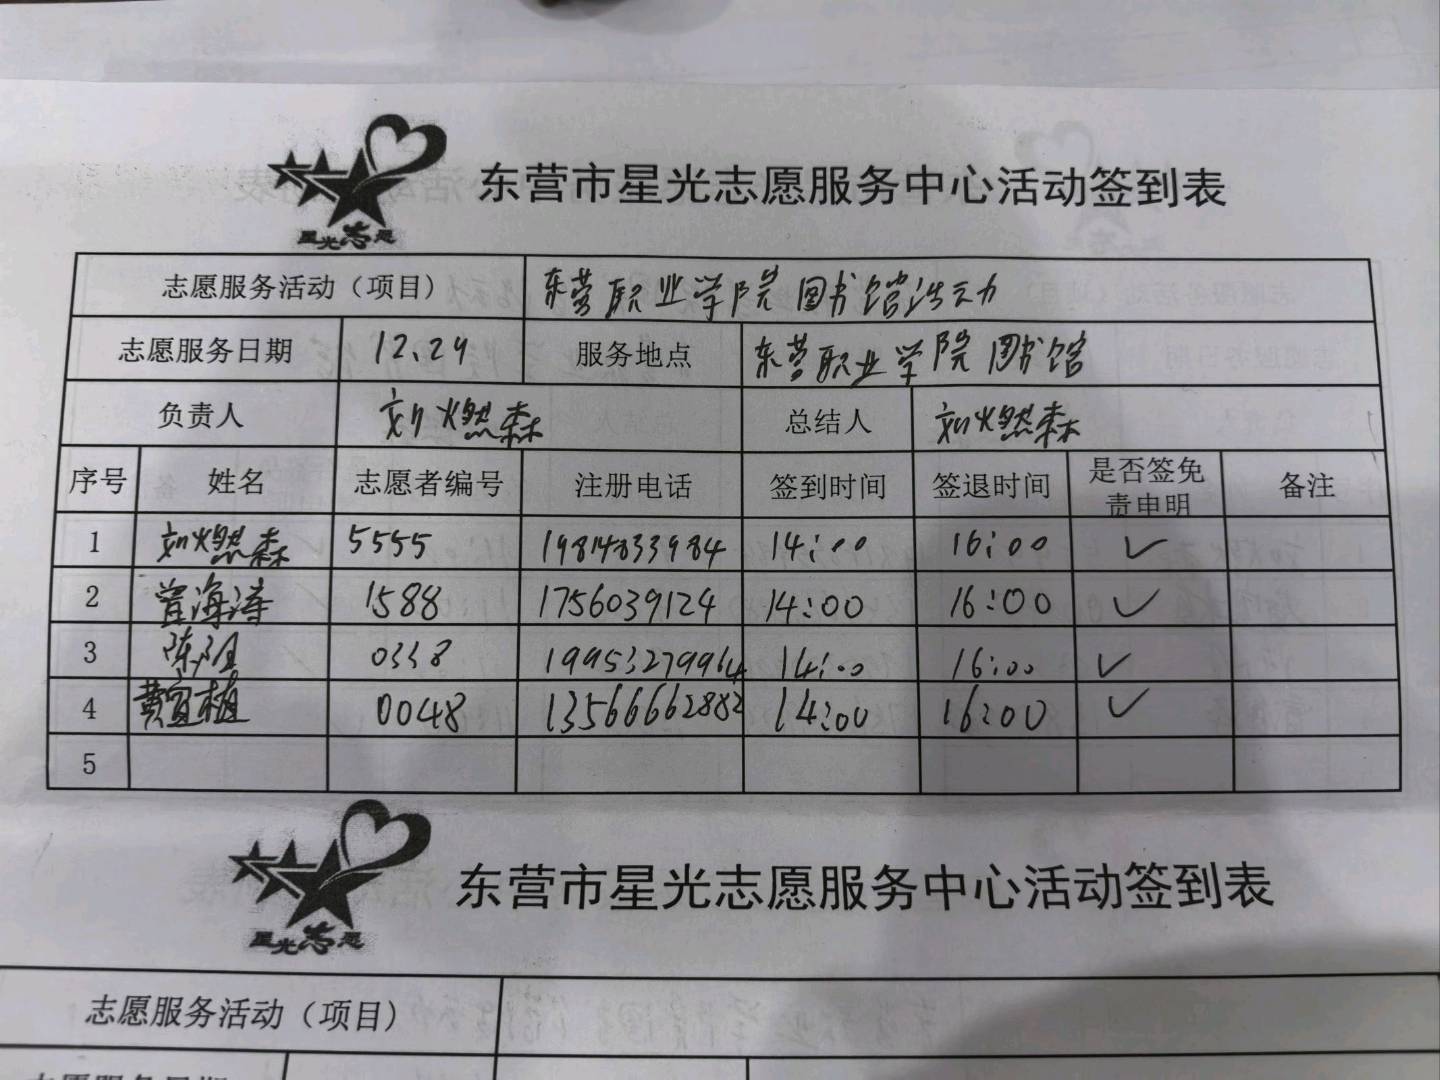 星光志愿
东营市星光志愿服务中心活动签到表
志愿服务活动（项目） 东营职业学院图书馆活动
志愿服务日期 12.24 服务地点 东营职业学院图书馆
负责人 刘燃森 总结人 刘燃森
序号 姓名 志愿者编号 注册电话 签到时间 签退时间 是否签免责申明 备注
1 刘燃森 5555 19814833984 14:00 16:00 ✓
2 曾海涛 1588 1756039124 14:00 16:00 ✓
3 0338 19953279964 14:00 16:00 ✓
4 黄宜植 0048 13566662882 14:00 16:00 ✓
5
星光志愿
东营市星光志愿服务中心活动签到表
志愿服务活动（项目）
志愿服务日期